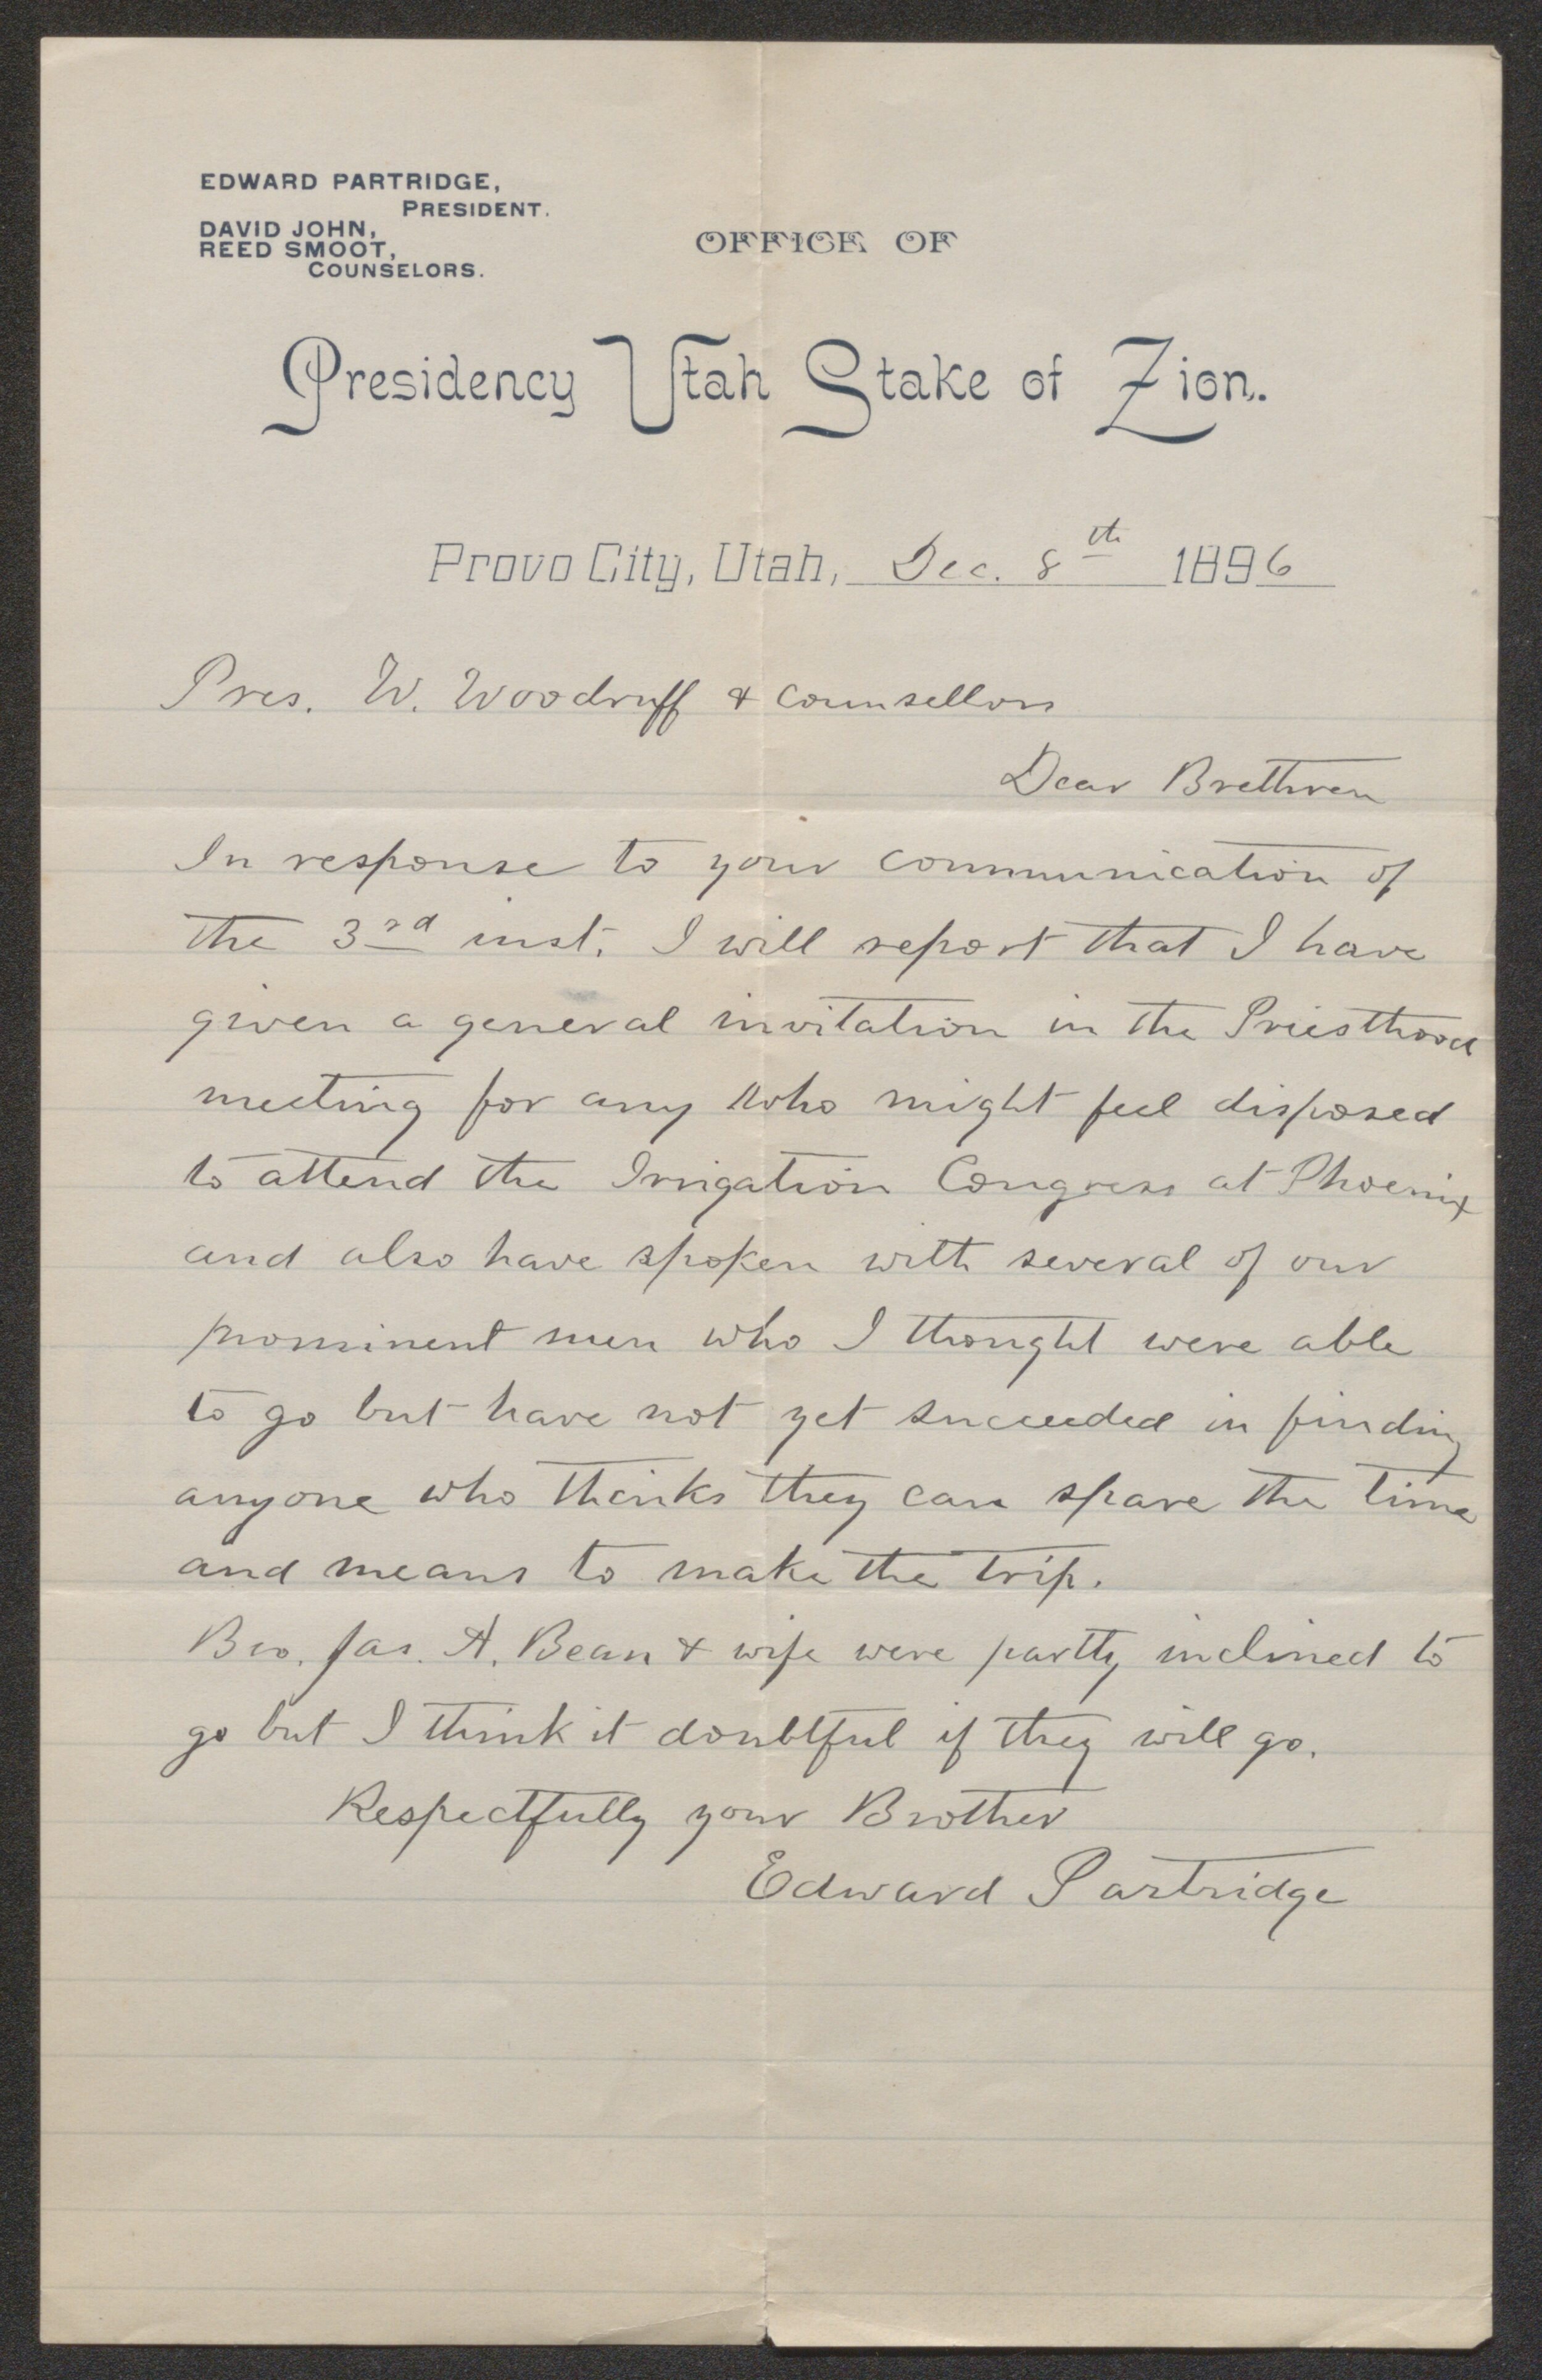 EDWARD PARTRIDGE,
PRESIDENT.
DAVID JOHN,
REED SMOOT,
COUNSELORS.
OFFICE OF
Presidency Utah Stake of Zion.
Provo City, Utah, Dec. 8th 1896
Pres. W. Woodruff & Counsellors
Dear Brethren
In response to your communication of
the 3rd inst. I will report that I have
given a general invitation in the Priesthood
meeting for any who might feel disposed
to attend the Irrigation Congress at Phoenix
and also have spoken with several of our
prominent men who I thought were able
to go but have not yet succeeded in finding
anyone who thinks they can spare the time
and means to make the trip.
Bro. Jas. A. Bean & wife were partly inclined to
go but I think it doubtful if they will go.
Respectfully your Brother
Edward Partridge